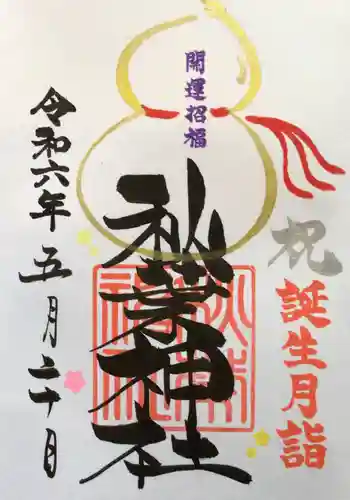 祝 誕生月詣
開運招福
秋葉神社
令和六年五月二十日